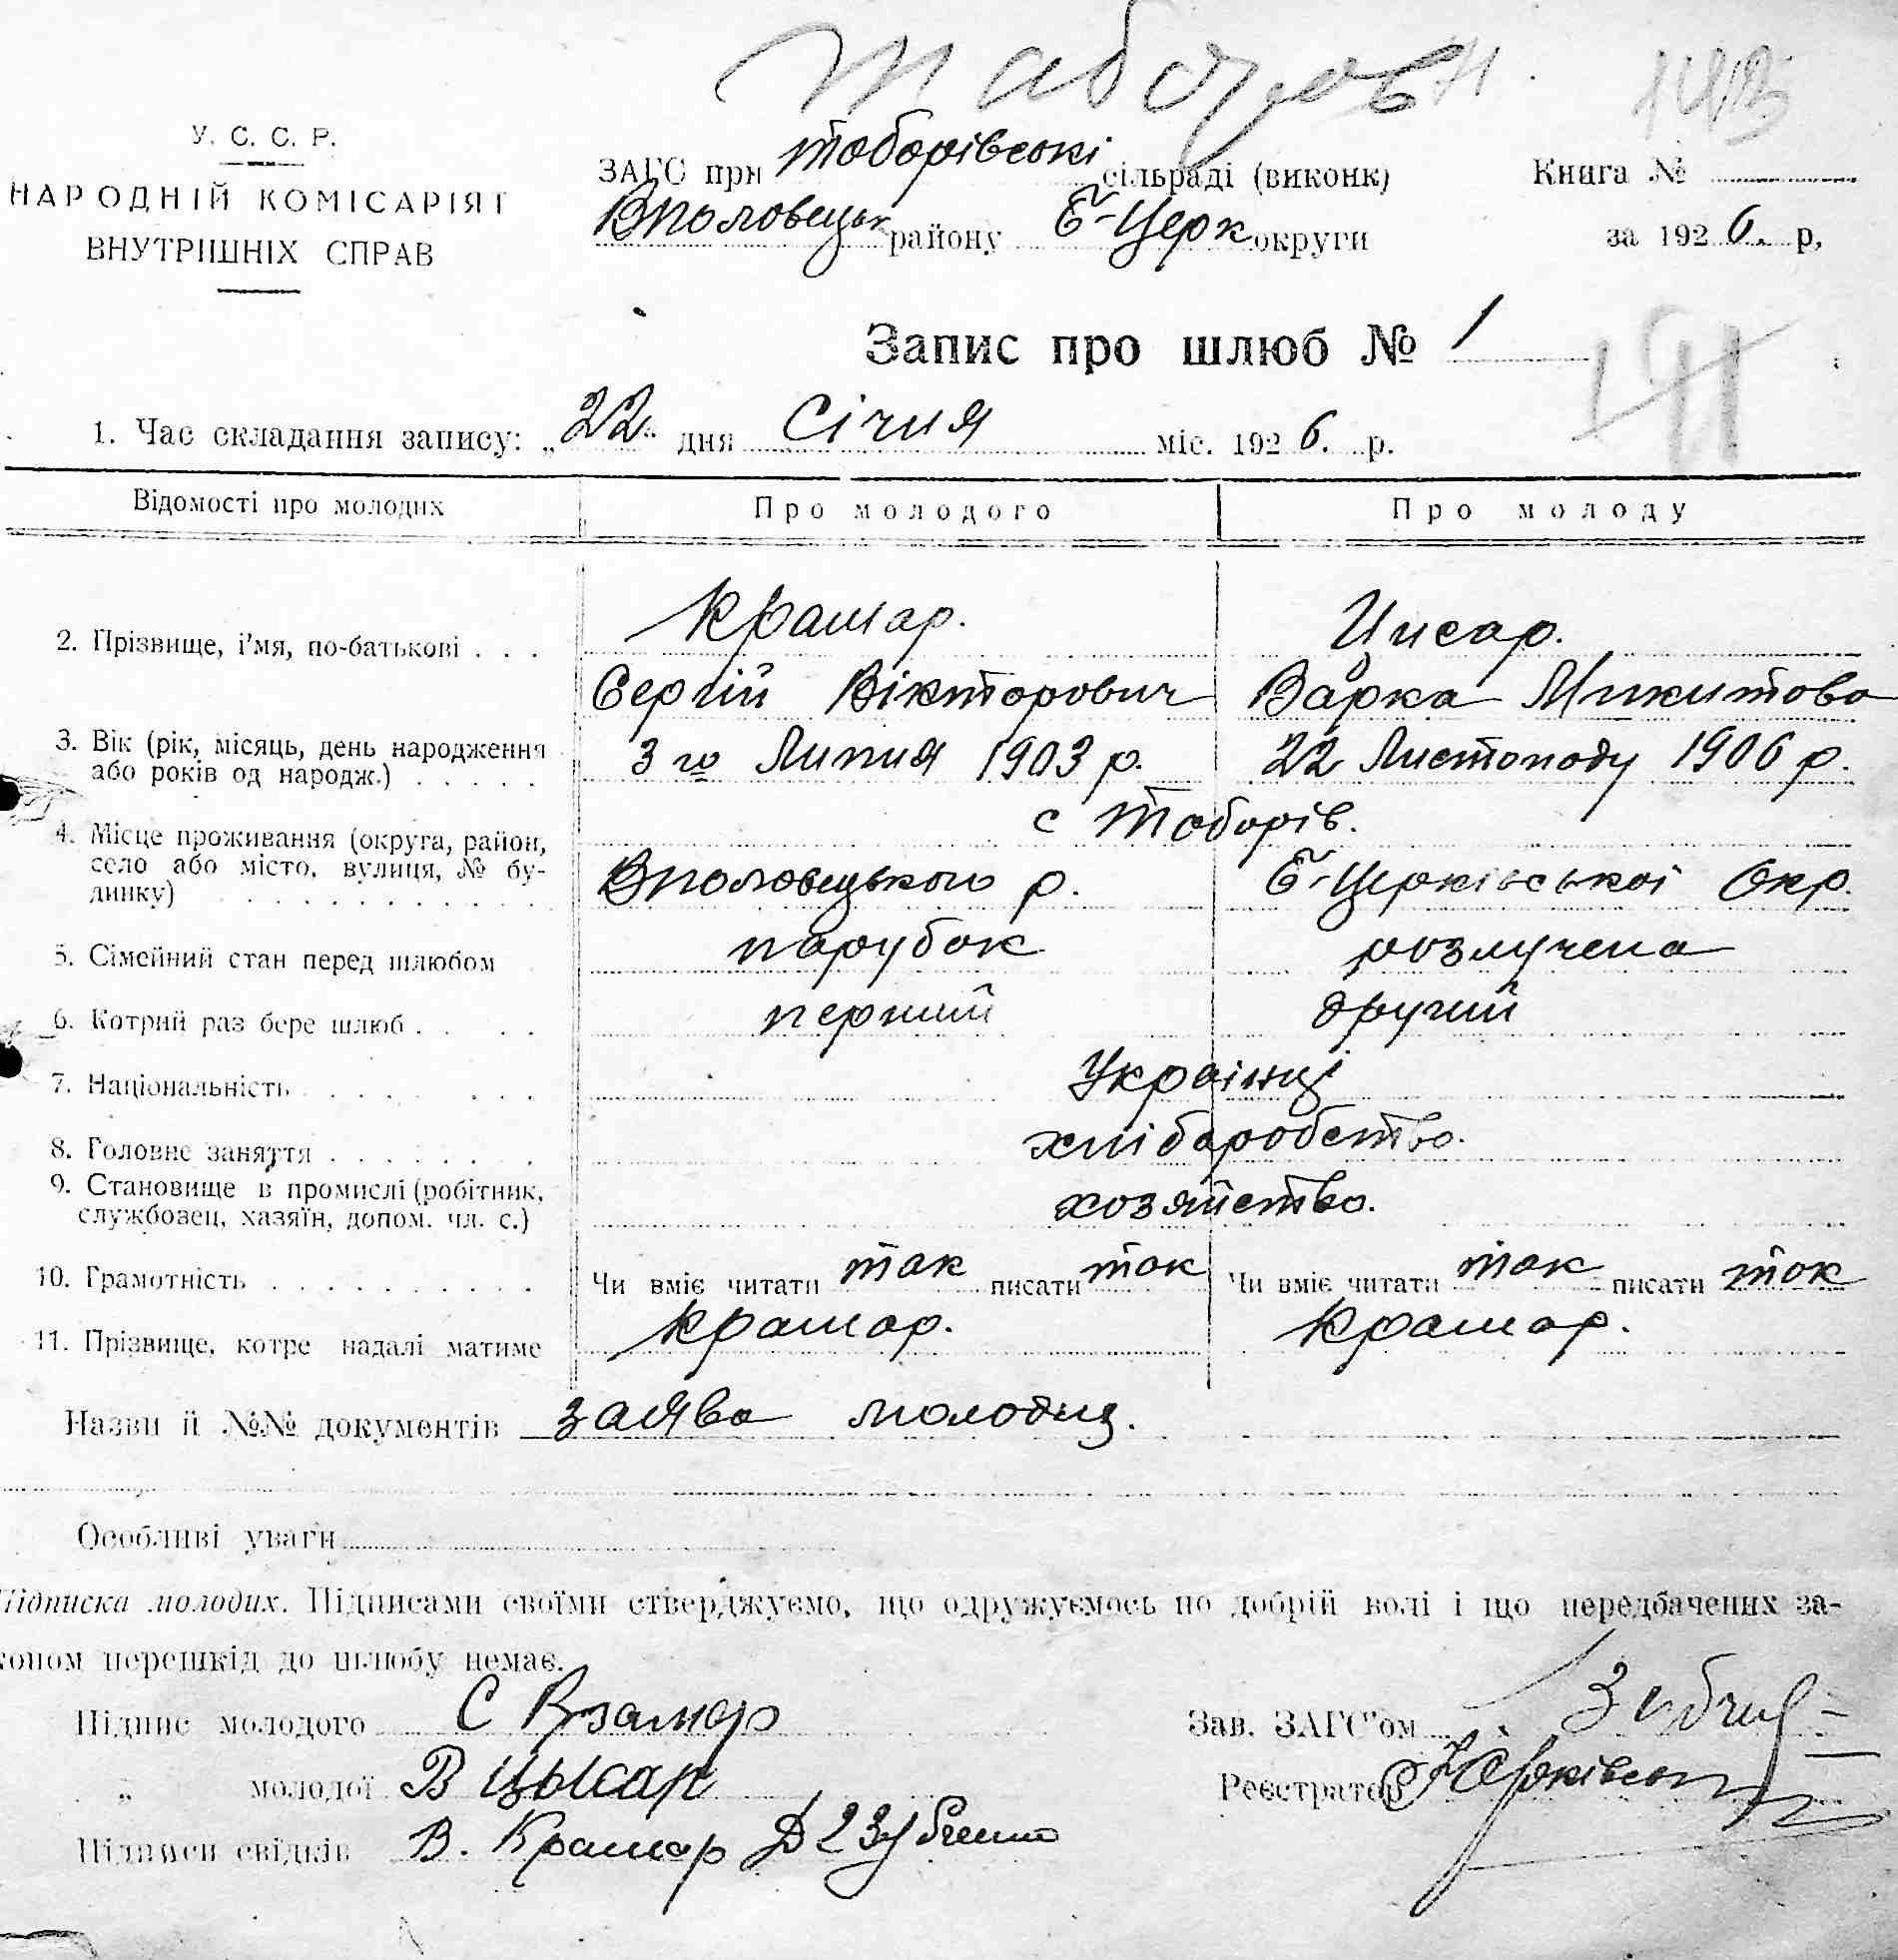 Таборів
143
У. С. С. Р.
НАРОДНІЙ КОМІСАРІЯТ
ВНУТРІШНІХ СПРАВ
ЗАГС при Таборівські сільраді (виконк)
Вполовецьк району Б-Церк округи
Книга №
за 1926. р,
Запис про шлюб № 1
1. Час складання запису: „22" дня Січня міс. 1926. р.
Відомості про молодих Про молодого Про молоду
Крамар. Цисар.
2. Прізвище, і'мя, по-батькові . . .
Сергій Вікторович Варка Микитова
3. Вік (рік, місяць, день народження або років од народж.) 3го Липня 1903 р. 22 Листопаду 1906 р.
с Таборів.
4. Місце проживання (округа, район, село або місто, вулиця, № будинку) Вполовецького р. Б-Церківської Окр.
5. Сімейний стан перед шлюбом парубок розлучена
6. Котрий раз бере шлюб перший другий
7. Національність Українці
8. Головне заняття хліборобство.
9. Становище в промислі (робітник, службовец, хазяїн, допом. чл. с.) хозяйство.
10. Грамотність Чи вміє читати так писати так Чи вміє читати так писати так
11. Прізвище, котре надалі матиме Крамар. Крамар.
Назви й №№ документів заява молодих.
Особливі уваги
Підписка молодих. Підписами своїми стверджуємо, що одружуємось по добрій волі і що передбачених за-
коном перешкід до шлюбу немає.
Підпис молодого С
Зав. ЗАГС'ом
„ молодої В Цысар
Реєстратор
Підписи свідків В. Крамар